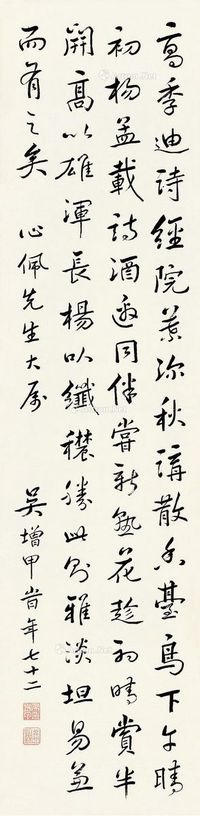 高季迪詩經院葉深秋講散香臺鳥下午晴
初楊孟載詩酒邀同伴嘗新熟花趁初晴賞半
開高以雄渾長楊以纖穠勝此則雅淡坦易並
而有之矣　心佩先生大屬
吳增甲當年七十二